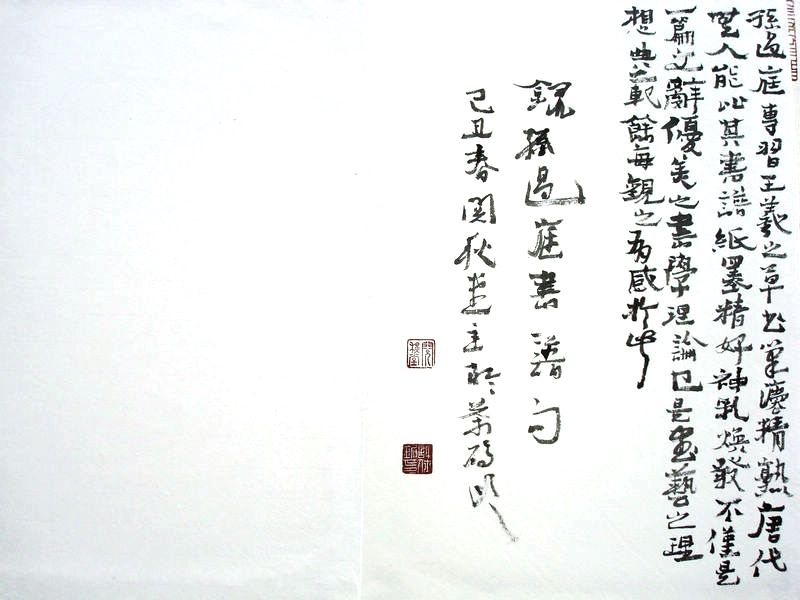 孫過庭專習王羲之草书筆灋精熟唐代
無人能比其書譜紙墨精好神氣煥發不僅是
一篇文辭優美之書學理論已是书藝之理
想典範餘每觀之有感於此
錄孫過庭書譜句
己丑春閑秋堂主